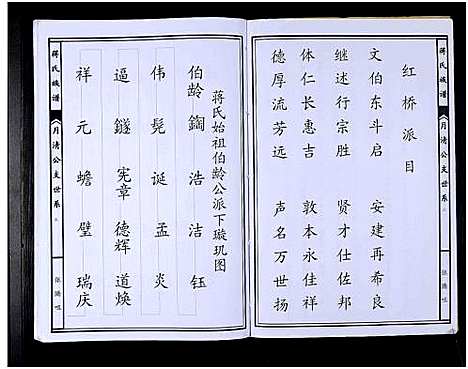 红桥派目
文伯东斗启 安建再希良
继述行宗胜 贤才仕佐邦
体仁长惠吉 敦本永佳祥
德厚流芳远 声名万世扬
蒋氏族谱
《月清公支世系》
蒋氏始祖伯龄公派下璇玑图
伯龄 鍧 浩 洁 钰
伟 髡 诞 孟 炎
逼 鐩 宪章 德辉 道焕
祥 元 蟾 璧 瑞庆
蒋氏族谱
《月清公支世系》